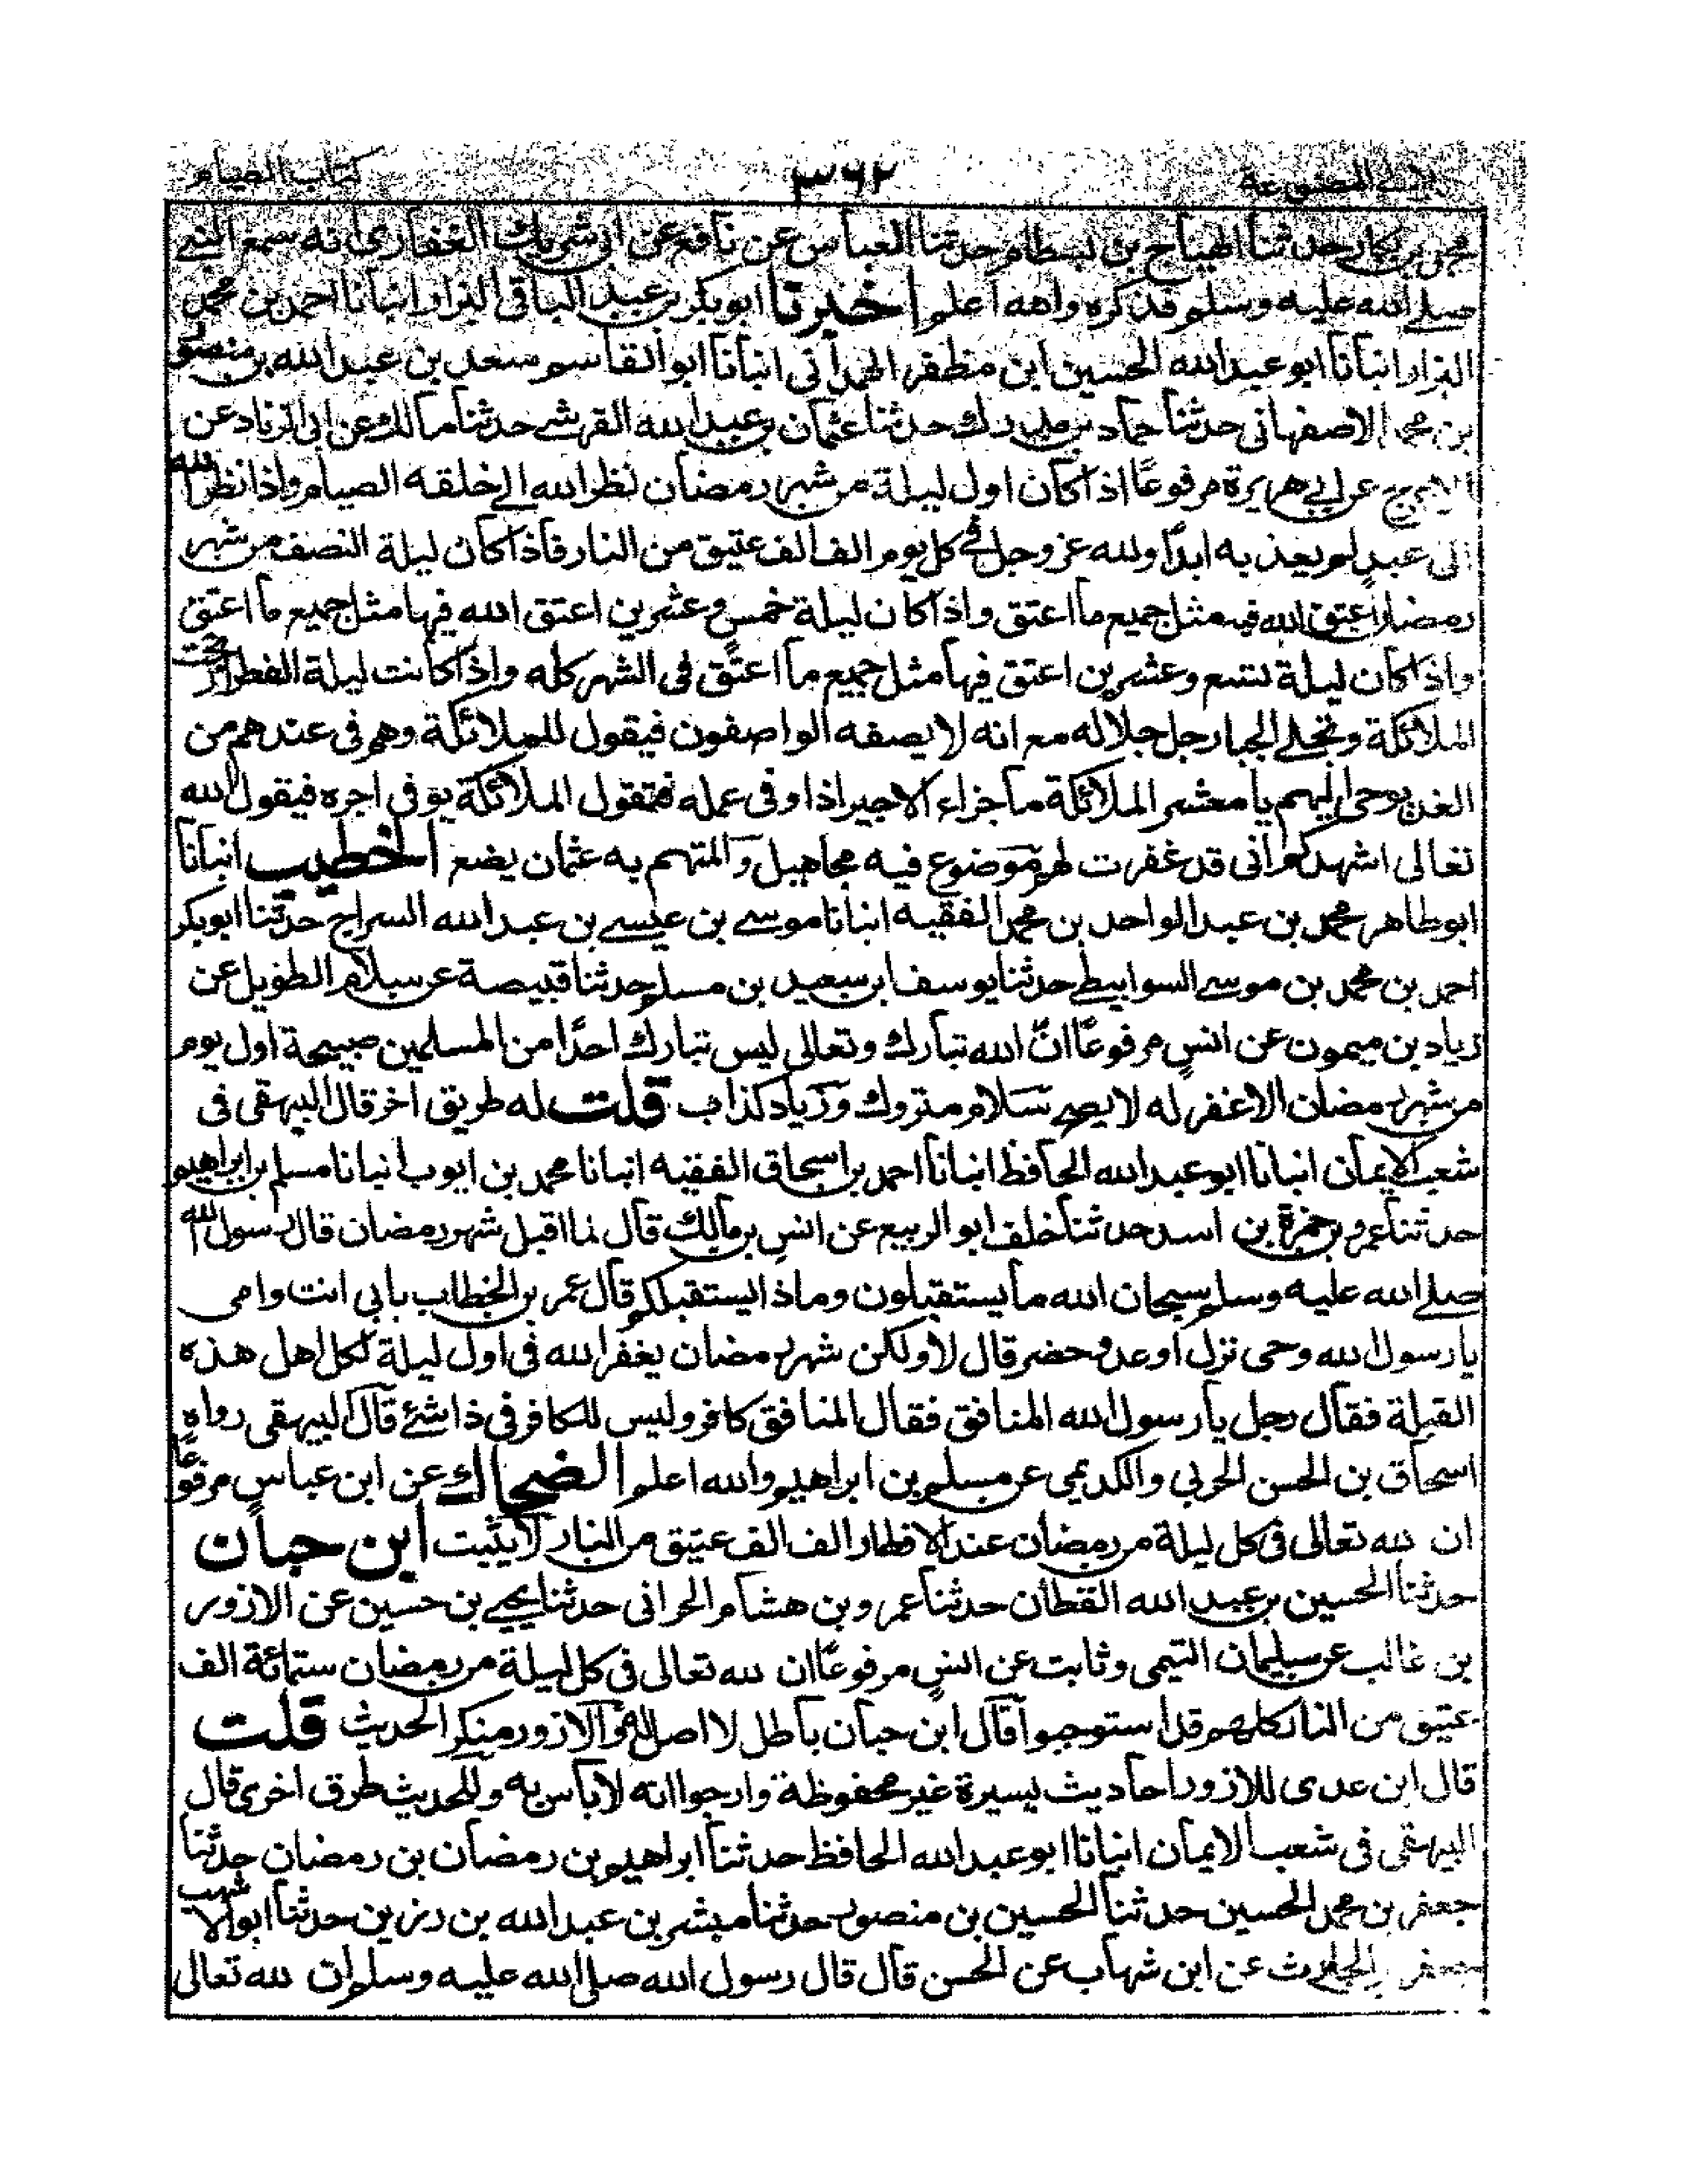 كتاب الصيام ٣٦٢ لآلى المصنوعة
محمد بن بكار حدثنا الهياج بن بسطام حدثنا العباس عن نافع عن ابى شريك الغفارى انه سمع النبے
صلے الله عليه وسلم فذكره والله اعلم اخبرنا ابو بكر بن عبد الباقى البزار انبانا احمد بن محمد
البزار انبانا ابو عبد الله الحسين ابن مظفر الهمدانى انبانا ابو القاسم سعد بن عبد الله بن منصور
بن محمد الاصفهانى حدثنا حماد بن مدرك حدثنا عثمان بن عبد الله القرشے حدثنا مالك عن ابى الزناد عن
الاعرج عن ابے هريرة مرفوعًا اذا كان اول ليلة من شهر رمضان نظر الله الے خلقه الصيام واذا نظر الله
الى عبدٍ لم يعذبه ابدًا ولله عز وجل فے كل يوم الف الف عتيق من النار فاذا كان ليلة النصف من شهر
رمضان اعتق الله فيه مثل جميع ما اعتق واذا كان ليلة خمسٍ وعشرين اعتق الله فيها مثل جميع ما اعتق
واذا كان ليلة تسع وعشرين اعتق فيها مثل جميع ما اعتق فى الشهر كله واذا كانت ليلة الفطر ارتجت
الملائكة وتجلے الجبار جل جلاله مع انه لا يصفه الواصفون فيقول للملائكة وهم فى عندهم من
الغد يوحى اليهم يا معشر الملائكة ما جزاء الاجير اذا وفى عمله فتقول الملائكة يوفى اجره فيقول الله
تعالى اشهدكم انى قد غفرت لهم موضوع فيه مجاهيل والمتهم به عثمان يضع الخطيب انبانا
ابو طاهر محمد بن عبد الواحد بن محمد الفقيه انبانا موسے بن عيسے بن عبد الله السراج حدثنا ابو بكر
احمد بن محمد بن موسے السوابيطے حدثنا يوسف ابن سعيد بن مسلم حدثنا قبيصة عن سلام الطويل عن
زياد بن ميمون عن انسٍ مرفوعًا انّ الله تبارك وتعالى ليس بتارك احدًا من المسلمين صبيحة اول يوم
من شهر رمضان الا غفر له لا يصح سلام متروك وزياد كذاب قلت له طريق اخر قال البيهقى فى
شعب الايمان انبانا ابو عبد الله الحافظ انبانا احمد بن اسحاق الفقيه انبانا محمد بن ايوب انبانا مسلم بن ابراهيم
حدثنا عمرو بن حمزة بن اسد حدثنا خلف ابو الربيع عن انس بن مالك قال لما اقبل شهر رمضان قال رسول الله
صلے الله عليه وسلم سبحان الله ما يستقبلون وماذا يستقبلكم قال عمر بن الخطاب بابى انت وامى
يا رسول الله وحى نزل او عدو حضر قال لا ولكن شهر رمضان يغفر الله فى اول ليلة لكل اهل هذه
القبلة فقال رجل يا رسول الله المنافق فقال المنافق كافر وليس للكافر فى ذا شئ قال البيهقى رواه
اسحاق بن الحسن الحربى والكديمى عن مسلم بن ابراهيم والله اعلم الضحاك عن ابن عباس مرفوعًا
ان لله تعالى فى كل ليلة من رمضان عند الافطار الف الف عتيق من النار لا يثبت ابن حبان
حدثنا الحسين بن عبد الله القطان حدثنا عمرو بن هشام الحرانى حدثنا يحيے بن حسين عن الازور
بن غالب عن سليمان التيمى وثابت عن انسٍ مرفوعًا ان لله تعالى فى كل ليلة من رمضان ستمائة الف
عتيق من النار كلهم قد استوجبوا قال ابن حبان باطل لا اصل له والازور منكر الحديث قلت
قال ابن عدى للازور احاديث يسيرة غير محفوظة وارجوا انه لا باس به وللحديث طرق اخرى قال
البيهقى فى شعب الايمان انبانا ابو عبد الله الحافظ حدثنا ابراهيم بن رمضان بن رمضان حدثنا
جعفر بن محمد الحسين حدثنا الحسين بن منصور حدثنا مبشر بن عبد الله بن رزين حدثنا ابو الاشهب
جعفر الحارث عن ابن شهاب عن الحسن قال قال رسول الله صلى الله عليه وسلم ان لله تعالى